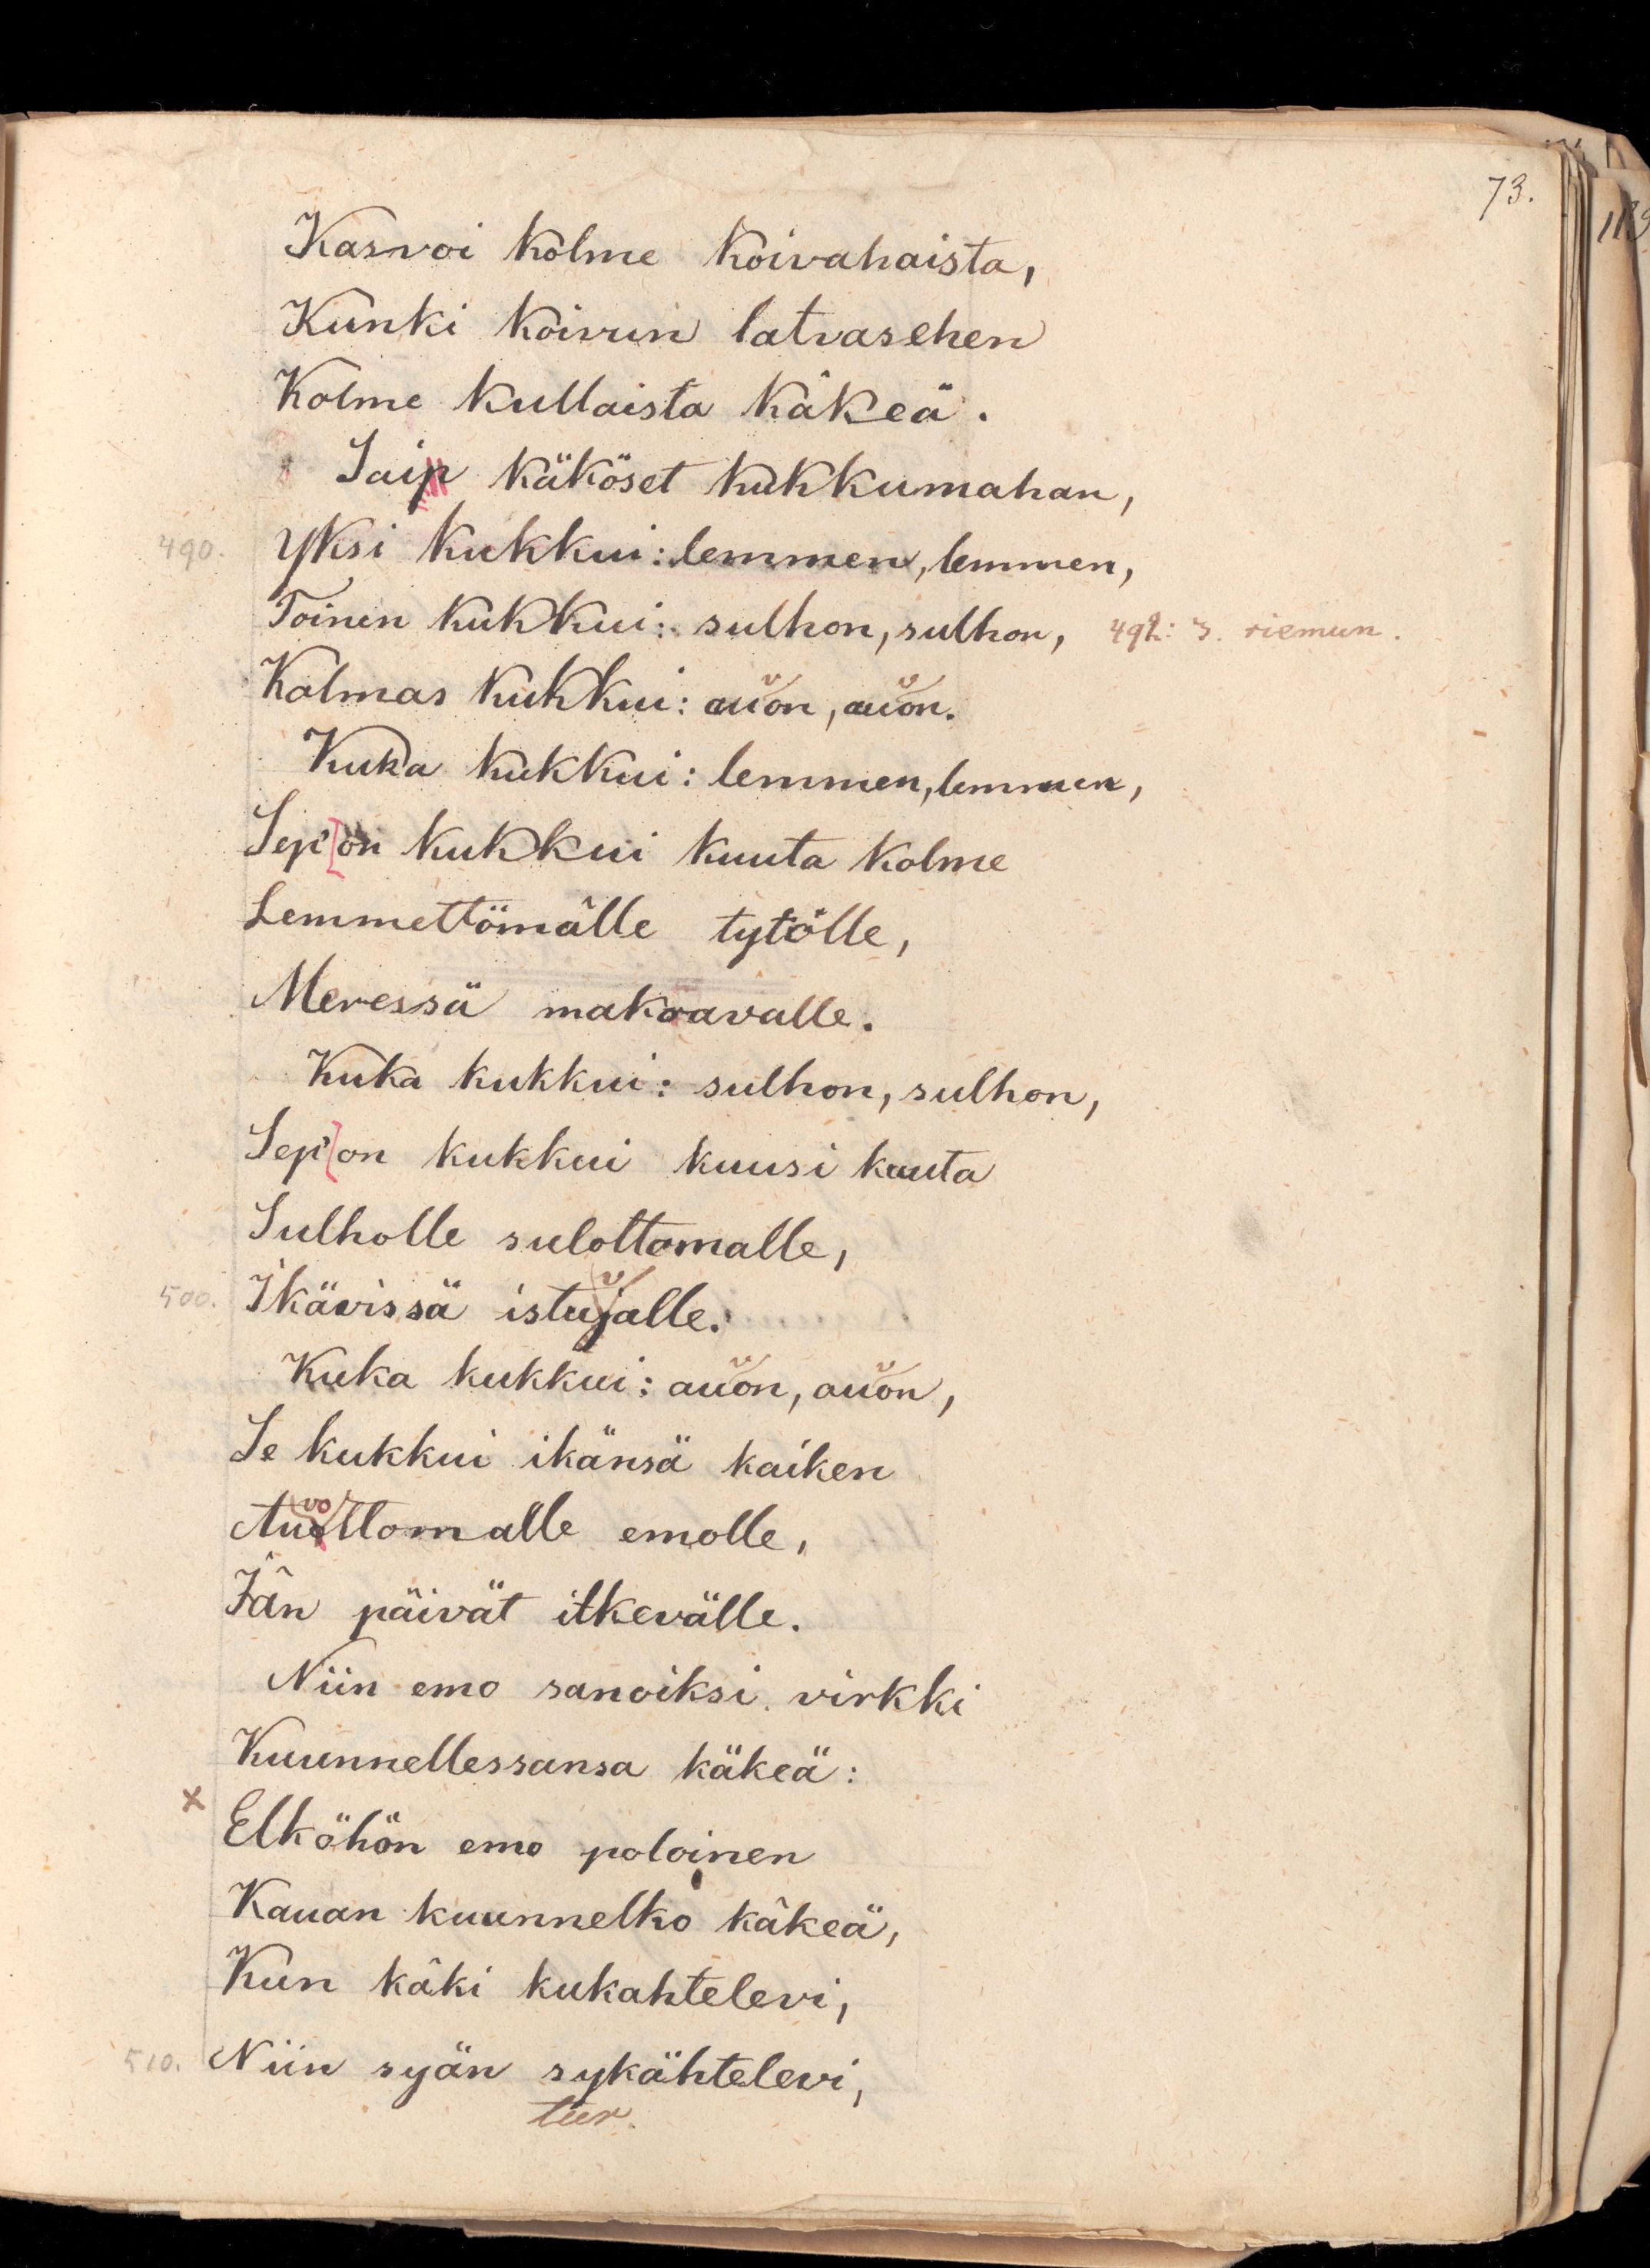 73.
Kasvoi kolme koivahaista,
Kunki koivun latvasehen
Kolme kullaista käkeä.
Saip käköset kukkumahan,
490. Yksi kukkui: lemmen, lemmen,
Toinen kukkui: sulhon, sulhon, 492: s. riemun.
Kolmas kukkui: auon, auon.
Kuka kukkui: lemmen, lemmen,
Sep' on kukkui kuuta kolme
Lemmettömälle tytölle,
Meressä makoavalle.
Kuka kukkui: sulhon, sulhon,
Sep' on kukkui kuusi kuuta
Sulholle sulottomalle,
500. Ikävissä istujalle.
Kuka kukkui: auon, auon,
Se kukkui ikänsä kaiken
Auottomalle emolle,
Iän päivät itkevälle.
Niin emo sanoiksi virkki
Kuunnellessansa käkeä:
x Elköhön emo poloinen
Kauan kuunnelko käkeä,
Kun käki kukahtelevi,
510. Niin syän sykähtelevi,
tur.